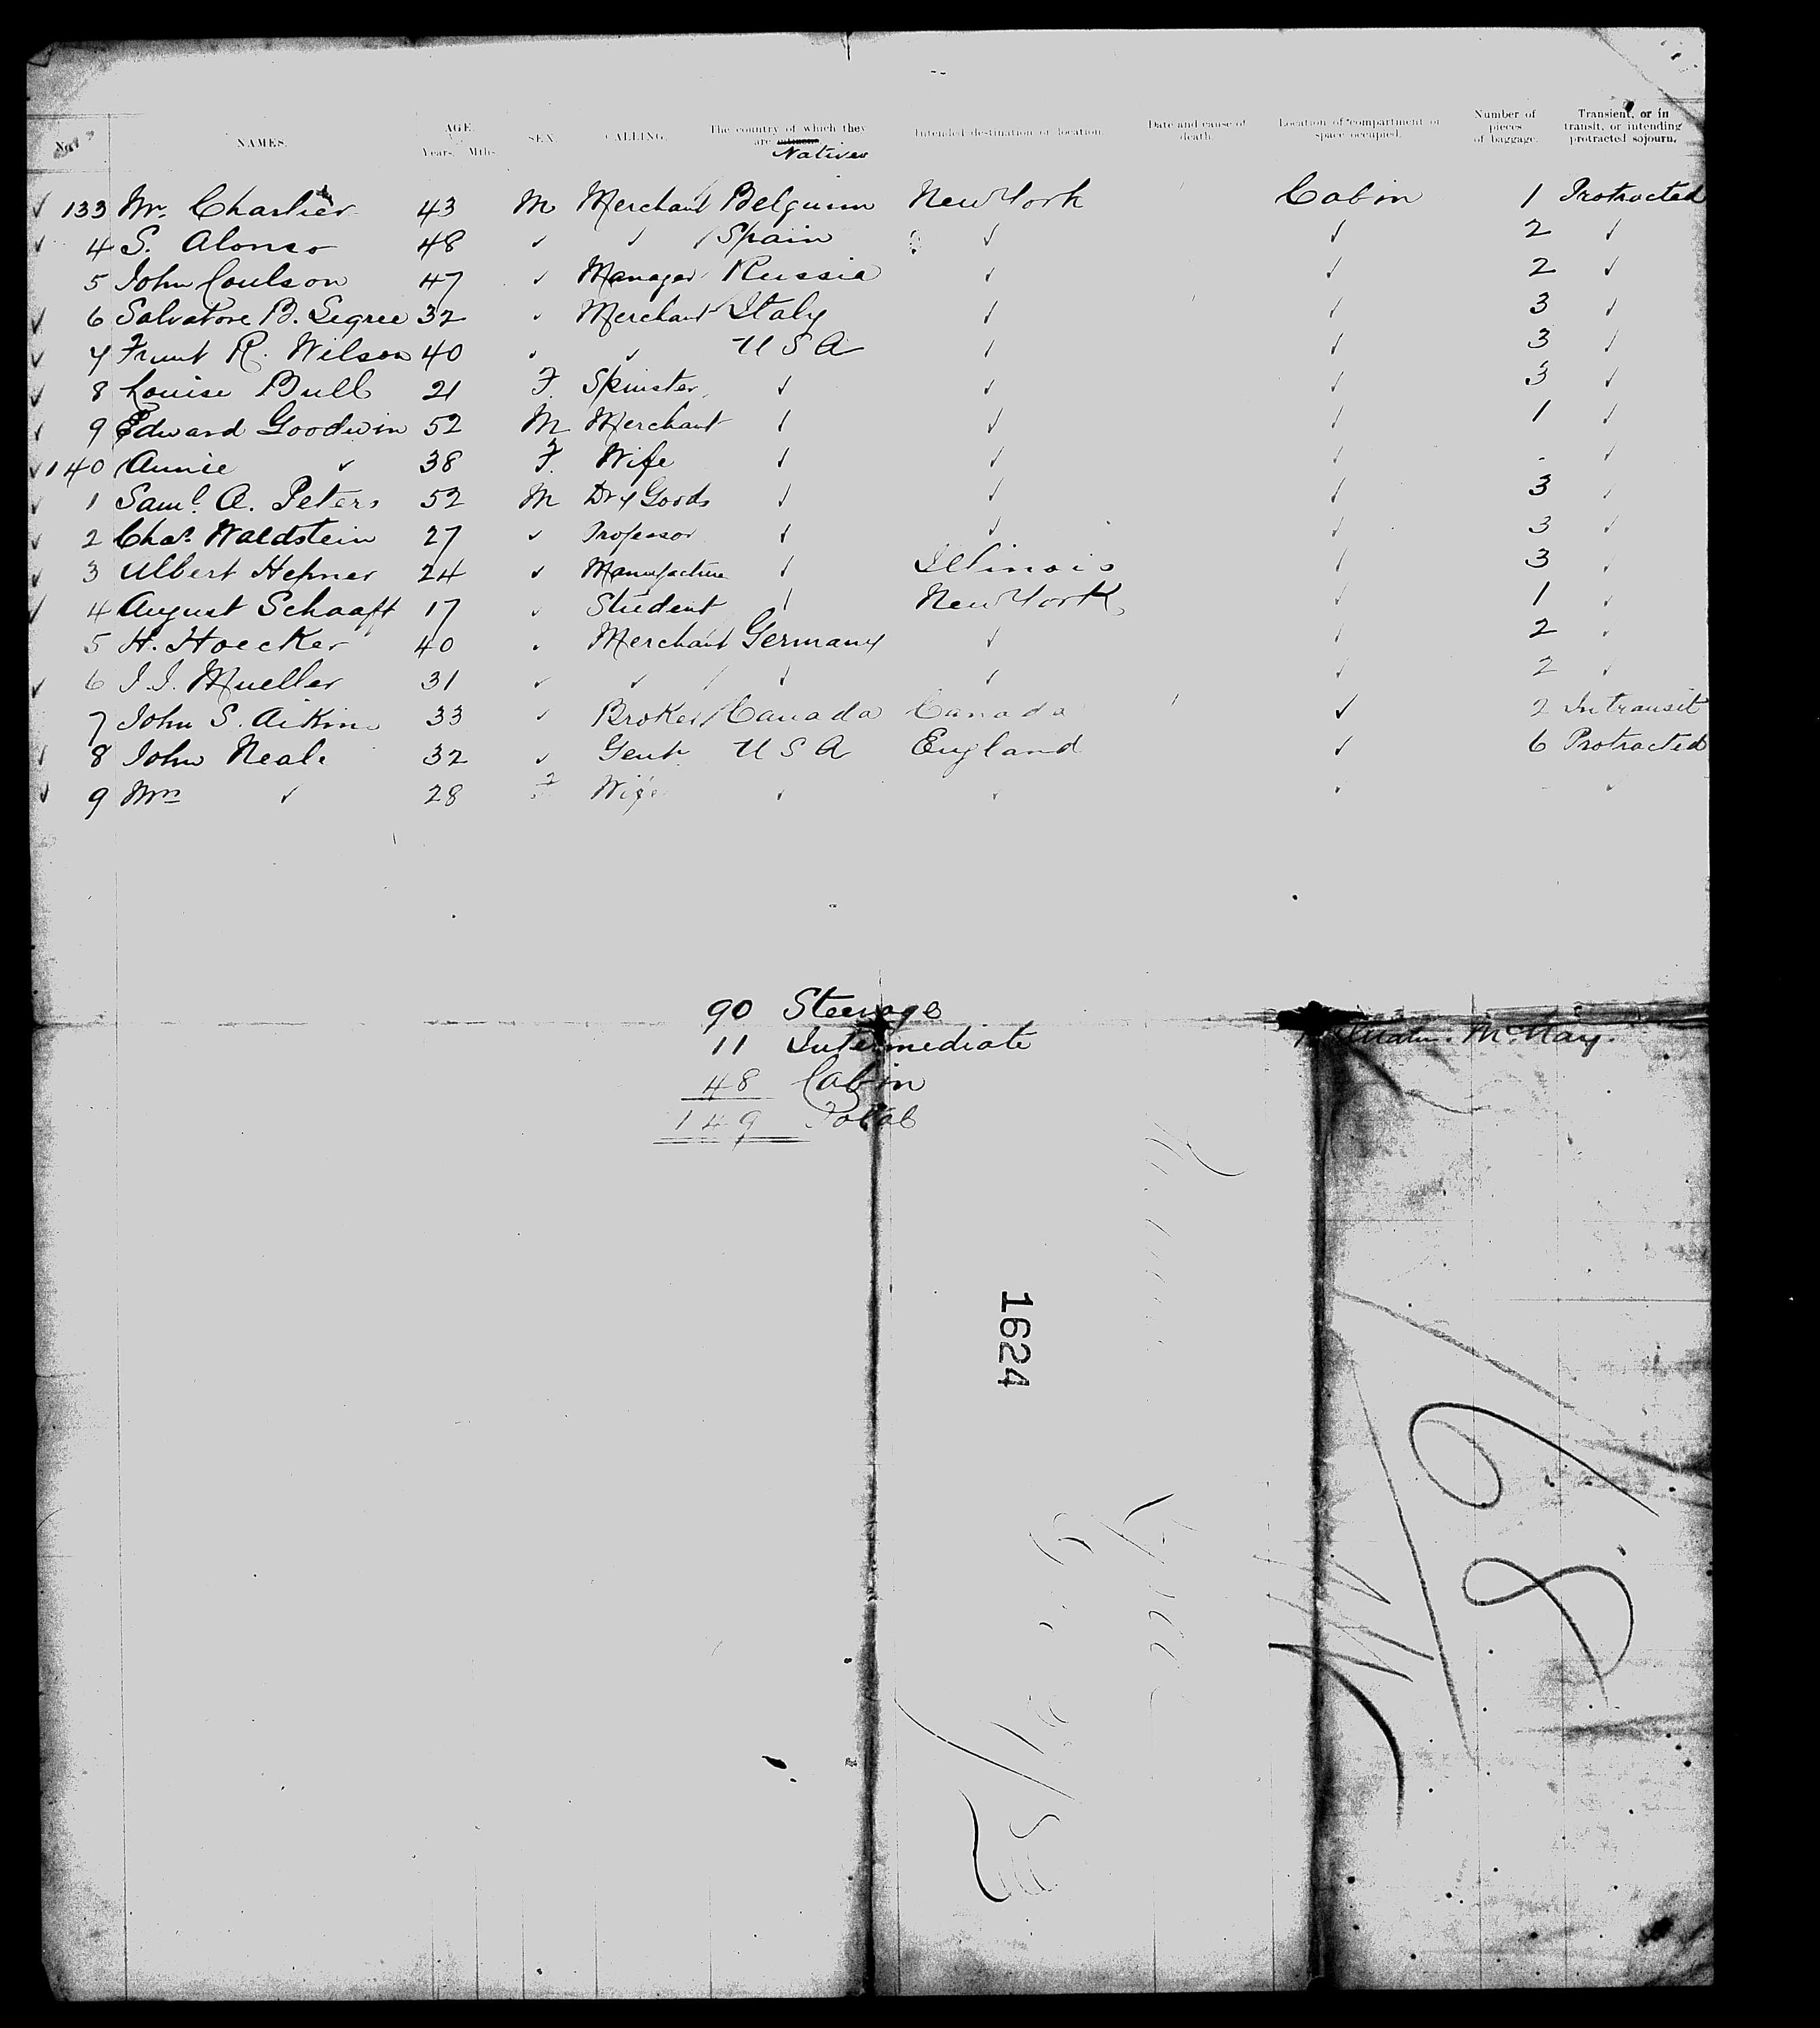 No. NAMES. AGE. Years. Mths. SEX. CALLING. The country of which they are citizens Natives Intended destination or location. Date and cause of death. Location of compartment or space occupied. Number of pieces of baggage. Transient, or in transit, or intending protracted sojourn.
✓ 133 Mr. Charlier 43 M Merchant Belguim New York Cabin 1 Protracted
✓ 4 S. Alonso 48 ✓ ✓ Spain ✓ ✓ 2 ✓
5 John Coulson 47 ✓ Manager Russia ✓ ✓ 2 ✓
✓ 6 Salvatore B. Segree 32 ✓ Merchant Italy ✓ ✓ 3 ✓
✓ 7 R. Wilson 40 ✓ ✓ U S A ✓ ✓ 3 ✓
✓ 8 Louise Bull 21 F. Spinster ✓ ✓ ✓ 3 ✓
✓ 9 Edward Goodwin 52 M Merchant ✓ ✓ ✓ 1 ✓
✓ 140 Annie ✓ 38 F. Wife ✓ ✓ ✓ - ✓
✓ 1 Saml. A. Peters 52 M Dry Goods ✓ ✓ ✓ 3 ✓
✓ 2 Chas. Waldstein 27 ✓ Professor ✓ ✓ ✓ 3 ✓
✓ 3 Albert Hepner 24 ✓ Manufacture ✓ Illinois ✓ 3 ✓
✓ 4 August Schaaft 17 ✓ Student ✓ New York ✓ 1 ✓
5 H. Hoecker 40 ✓ Merchant Germany ✓ ✓ 2 ✓
✓ 6 J. J. Mueller 31 ✓ ✓ ✓ ✓ ✓ 2 ✓
7 John S. Aikin 33 ✓ Broker Canada Canada ✓ 2 In transit
✓ 8 John Neale 32 ✓ Gent. U S A England ✓ 6 Protracted
✓ 9 Mrs ✓ 28 F Wife ✓ ✓ ✓ - ✓
90 Steerage
11 Intermediate
48 Cabin
149 Total
McKay.
1624